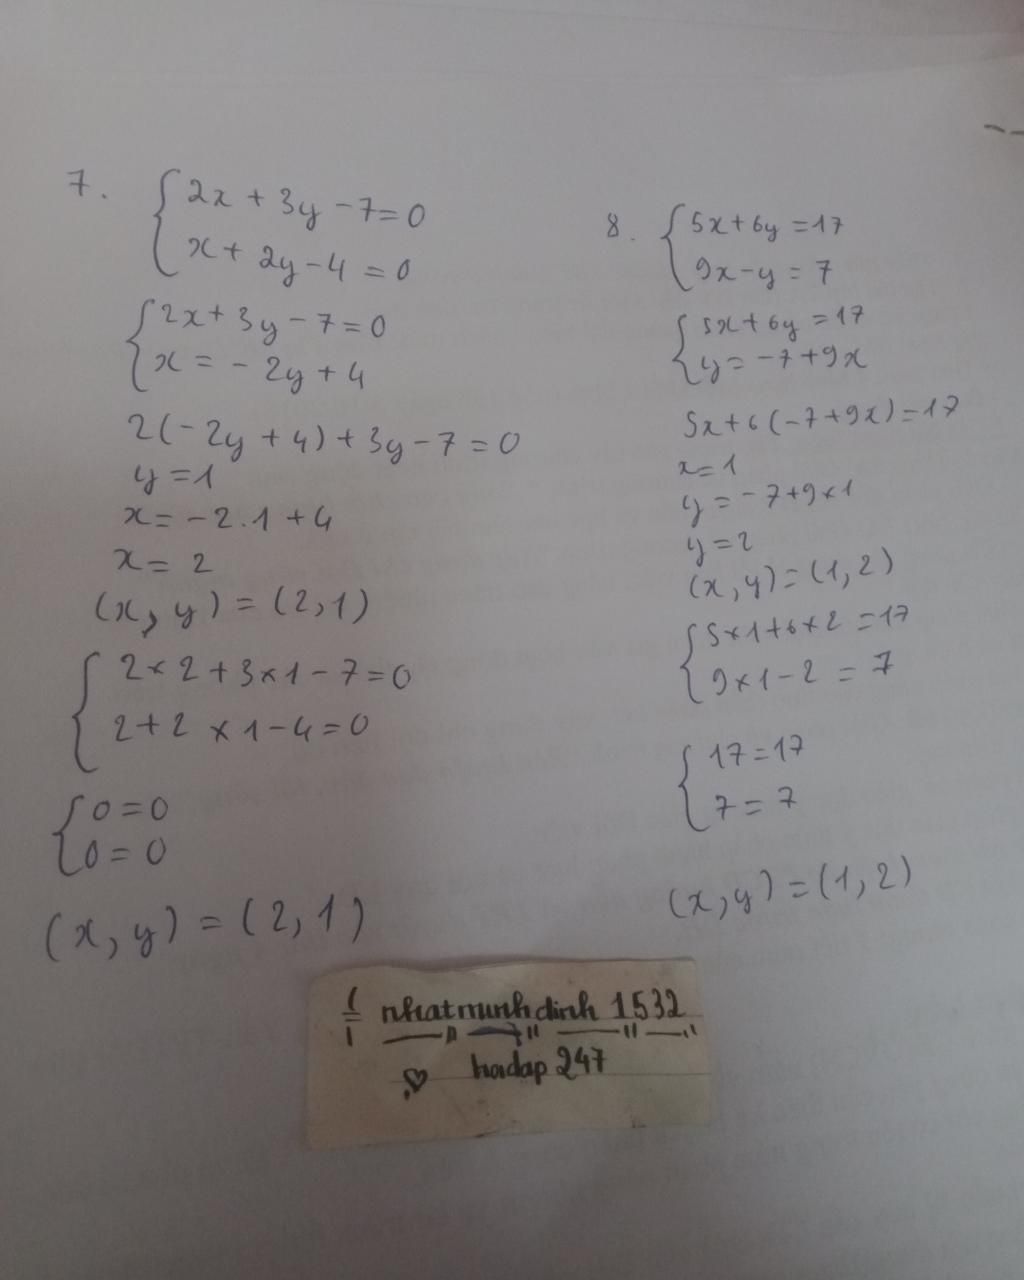 7. {2x + 3y - 7 = 0
x + 2y - 4 = 0
{2x + 3y - 7 = 0
x = - 2y + 4
2(- 2y + 4) + 3y - 7 = 0
y = 1
x = - 2 . 1 + 4
x = 2
(x, y) = (2, 1)
{2 × 2 + 3 × 1 - 7 = 0
2 + 2 × 1 - 4 = 0
{0 = 0
0 = 0
(x, y) = (2, 1)
8. {5x + 6y = 17
9x - y = 7
{5x + 6y = 17
y = - 7 + 9x
5x + 6(- 7 + 9x) = 17
x = 1
y = - 7 + 9 × 1
y = 2
(x, y) = (1, 2)
{5 × 1 + 6 × 2 = 17
9 × 1 - 2 = 7
{17 = 17
7 = 7
(x, y) = (1, 2)
nhatminhdinh 1532
hoidap 247